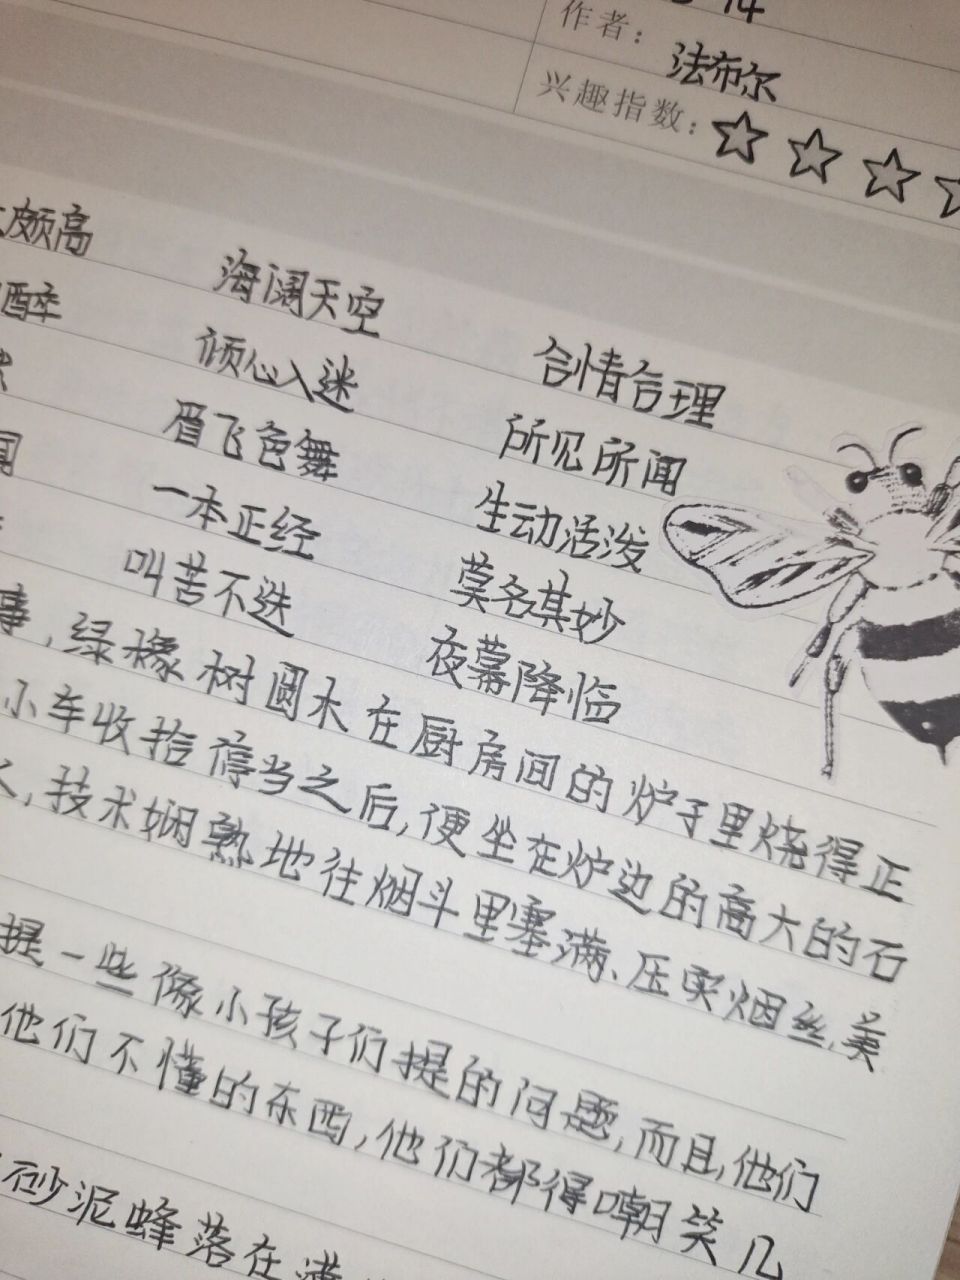 作者：法布尔
兴趣指数：☆☆☆
颇高 海阔天空 合情合理
醉 倾心入迷 所见所闻
眉飞色舞 生动活泼
一本正经 莫名其妙
叫苦不迭 夜幕降临
事，绿橡树圆木在厨房间的炉子里烧得正
小车收拾停当之后，便坐在炉边的高大的石
，技术娴熟地往烟斗里塞满、压实烟丝，美
提一些像小孩子们提的问题，而且，他们
他们不懂的东西，他们都得嘲笑几
砂泥蜂落在满